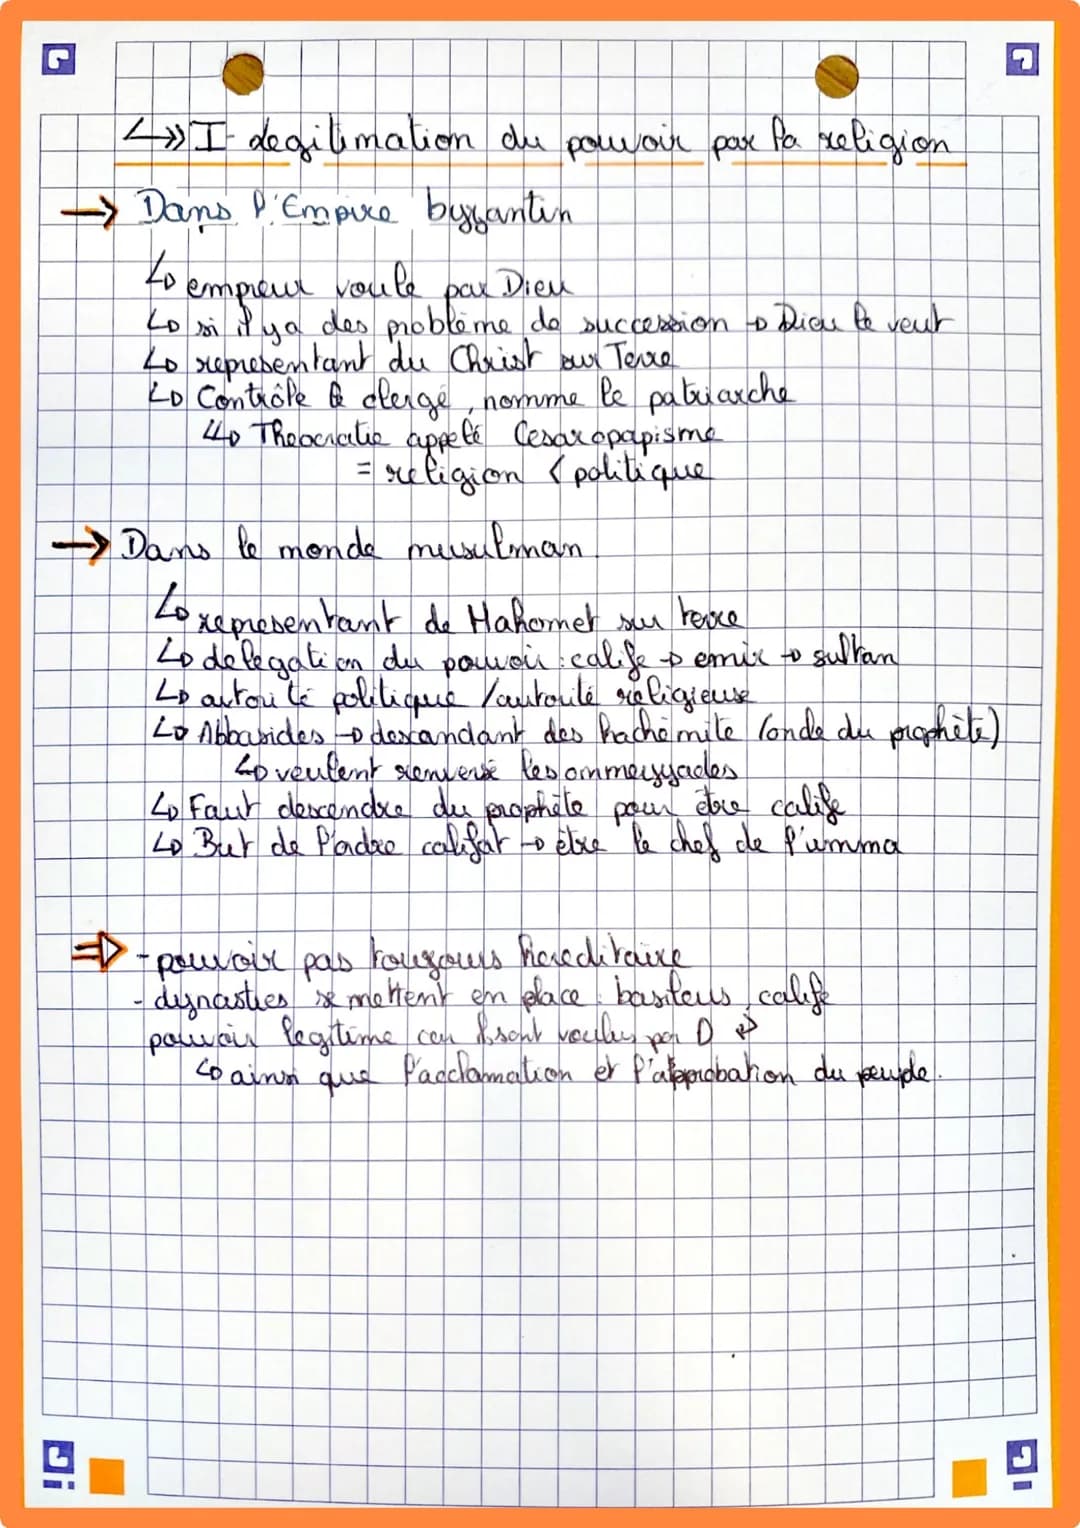 ↳» I - degitimation du pouvoir par la religion
→ Dans l'Empire byzantin
↳ empreur voule par Dieu
↳ si il ya des problème de succession → Dieu le veut
↳ representant du Christ sur Terre
↳ Contrôle le clergé, nomme le patriarche
↳ Theocratie appelé Cesaropapisme
= religion < politique
→ Dans le monde musulman.
↳ representant de Mahomet sur terre
↳ delegation du pouvoir : calife → emir → sultan
↳ autorité politique / autorité religieuse
↳ Abbasides → descendant des hachémite (oncle du prophète)
↳ veulent renversé les ommeyyades
↳ Faut descendre du prophète pour être calife
↳ But de l'ordre califat → être le chef de l'umma
⇒ - pouvoir pas tougours hereditaire
- dynasties se mettent en place : basileus, calife
pouvoir legitime car sont voulus par D
↳ ainsi que l'acclamation et l'approbation du peuple.